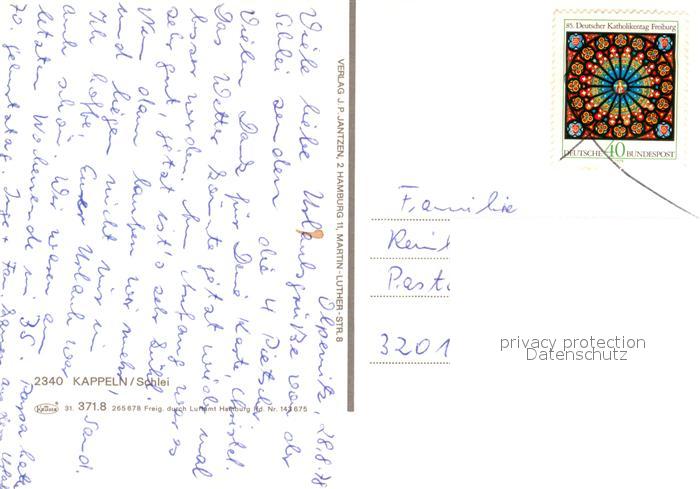 Olpenitz, 28.8.78
Viele liebe Urlaubsgrüße von der
Schlei senden die 4 Pietscher
Vielen Dank für Deine Karte, Christel.
Das Wetter könnte jetzt wieder mal
besser werden. Am Anfang war es
sehr gut, jetzt ist's sehr kühl.
Nun dann laufen wir mehr,
und liegen nicht nur im Sand.
Ich hoffe, Euer Urlaub war
auch schön. Wir waren am
letzten Wochenende in 35. Papa hatte
70. Geburtstag. Inge + Fam. waren aus
VERLAG J. P. JANTZEN, 2 HAMBURG 11, MARTIN-LUTHER-STR. 8
2340 KAPPELN/Schlei
Krüger 31. 371.8 265678 Freig. durch Luftamt Hamburg Nr. 143675
85. Deutscher Katholikentag Freiburg
DEUTSCHE 40 BUNDESPOST
Familie
Rein
Past
3201
privacy protection
Datenschutz